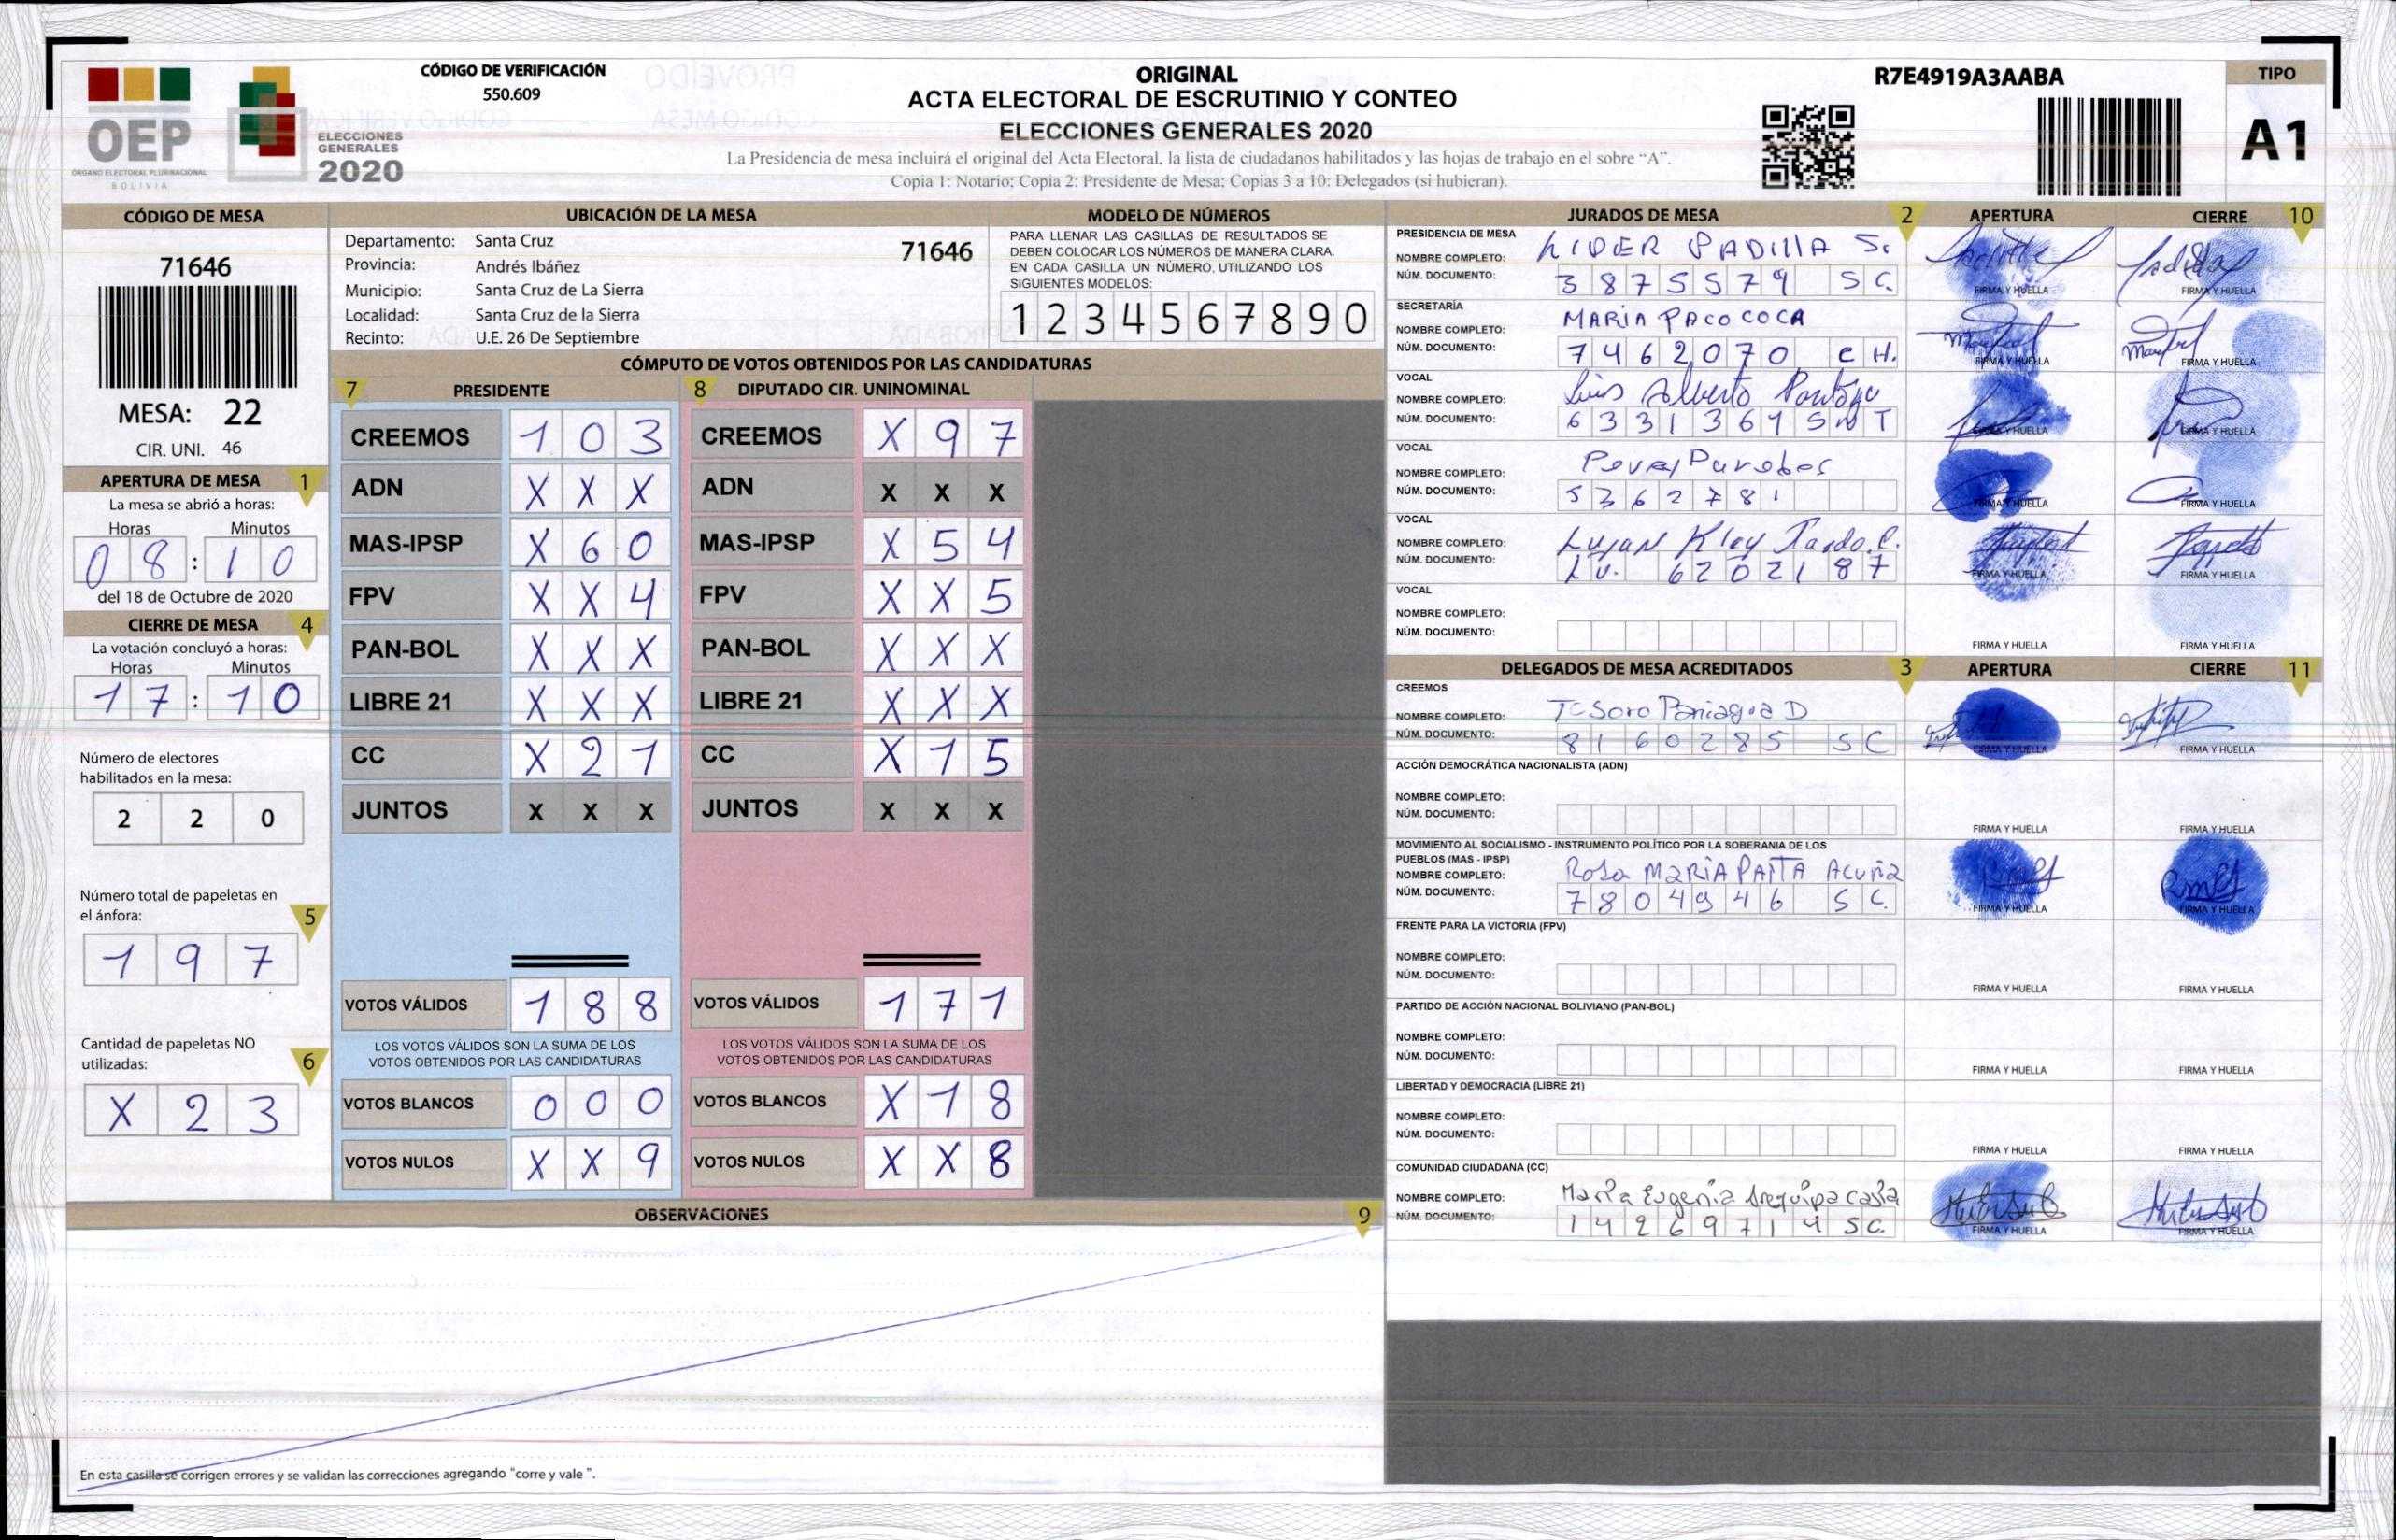 CÓDIGO DE VERIFICACIÓN
550.609
OEP
ÓRGANO ELECTORAL PLURINACIONAL
BOLIVIA
ELECCIONES
GENERALES
2020
ORIGINAL
ACTA ELECTORAL DE ESCRUTINIO Y CONTEO
ELECCIONES GENERALES 2020
La Presidencia de mesa incluirá el original del Acta Electoral, la lista de ciudadanos habilitados y las hojas de trabajo en el sobre "A".
Copia 1: Notario; Copia 2: Presidente de Mesa; Copias 3 a 10: Delegados (si hubieran).
R7E4919A3AABA
TIPO
A1
CÓDIGO DE MESA
71646
MESA: 22
CIR. UNI. 46
APERTURA DE MESA 1
La mesa se abrió a horas:
Horas Minutos
08 : 10
del 18 de Octubre de 2020
CIERRE DE MESA 4
La votación concluyó a horas:
Horas Minutos
17 : 10
Número de electores
habilitados en la mesa:
2 2 0
Número total de papeletas en
el ánfora: 5
1 9 7
Cantidad de papeletas NO
utilizadas: 6
X 2 3
UBICACIÓN DE LA MESA
Departamento: Santa Cruz 71646
Provincia: Andrés Ibáñez
Municipio: Santa Cruz de La Sierra
Localidad: Santa Cruz de la Sierra
Recinto: U.E. 26 De Septiembre
MODELO DE NÚMEROS
PARA LLENAR LAS CASILLAS DE RESULTADOS SE
DEBEN COLOCAR LOS NÚMEROS DE MANERA CLARA.
EN CADA CASILLA UN NÚMERO, UTILIZANDO LOS
SIGUIENTES MODELOS:
1 2 3 4 5 6 7 8 9 0
CÓMPUTO DE VOTOS OBTENIDOS POR LAS CANDIDATURAS
7 PRESIDENTE 8 DIPUTADO CIR. UNINOMINAL
CREEMOS 1 0 3 CREEMOS X 9 7
ADN X X X ADN X X X
MAS-IPSP X 6 0 MAS-IPSP X 5 4
FPV X X 4 FPV X X 5
PAN-BOL X X X PAN-BOL X X X
LIBRE 21 X X X LIBRE 21 X X X
CC X 2 1 CC X 1 5
JUNTOS X X X JUNTOS X X X
VOTOS VÁLIDOS 1 8 8 VOTOS VÁLIDOS 1 7 1
LOS VOTOS VÁLIDOS SON LA SUMA DE LOS LOS VOTOS VÁLIDOS SON LA SUMA DE LOS
VOTOS OBTENIDOS POR LAS CANDIDATURAS VOTOS OBTENIDOS POR LAS CANDIDATURAS
VOTOS BLANCOS 0 0 0 VOTOS BLANCOS X 1 8
VOTOS NULOS X X 9 VOTOS NULOS X X 8
OBSERVACIONES 9
En esta casilla se corrigen errores y se validan las correcciones agregando "corre y vale ".
JURADOS DE MESA 2 APERTURA CIERRE 10
PRESIDENCIA DE MESA
NOMBRE COMPLETO: LIDER PADILLA S.
NÚM. DOCUMENTO: 3875579 SC.
FIRMA Y HUELLA FIRMA Y HUELLA
SECRETARÍA
NOMBRE COMPLETO: MARIA PACO COCA
NÚM. DOCUMENTO: 7462070 CH.
FIRMA Y HUELLA FIRMA Y HUELLA
VOCAL
NOMBRE COMPLETO: Luis Alberto
NÚM. DOCUMENTO:
FIRMA Y HUELLA FIRMA Y HUELLA
VOCAL
NOMBRE COMPLETO:
NÚM. DOCUMENTO: 5362781
FIRMA Y HUELLA FIRMA Y HUELLA
VOCAL
NOMBRE COMPLETO:
NÚM. DOCUMENTO: 6202187
FIRMA Y HUELLA FIRMA Y HUELLA
VOCAL
NOMBRE COMPLETO:
NÚM. DOCUMENTO:
FIRMA Y HUELLA FIRMA Y HUELLA
DELEGADOS DE MESA ACREDITADOS 3 APERTURA CIERRE 11
CREEMOS
NOMBRE COMPLETO: Tesoro Paniagua D
NÚM. DOCUMENTO: 8160285 SC
FIRMA Y HUELLA FIRMA Y HUELLA
ACCIÓN DEMOCRÁTICA NACIONALISTA (ADN)
NOMBRE COMPLETO:
NÚM. DOCUMENTO:
FIRMA Y HUELLA FIRMA Y HUELLA
MOVIMIENTO AL SOCIALISMO - INSTRUMENTO POLÍTICO POR LA SOBERANIA DE LOS
PUEBLOS (MAS - IPSP)
NOMBRE COMPLETO: Rosa MARIA PAITA Acuña
NÚM. DOCUMENTO: 7804946 SC.
FIRMA Y HUELLA FIRMA Y HUELLA
FRENTE PARA LA VICTORIA (FPV)
NOMBRE COMPLETO:
NÚM. DOCUMENTO:
FIRMA Y HUELLA FIRMA Y HUELLA
PARTIDO DE ACCIÓN NACIONAL BOLIVIANO (PAN-BOL)
NOMBRE COMPLETO:
NÚM. DOCUMENTO:
FIRMA Y HUELLA FIRMA Y HUELLA
LIBERTAD Y DEMOCRACIA (LIBRE 21)
NOMBRE COMPLETO:
NÚM. DOCUMENTO:
FIRMA Y HUELLA FIRMA Y HUELLA
COMUNIDAD CIUDADANA (CC)
NOMBRE COMPLETO: Maria Eugenia Arequipa
NÚM. DOCUMENTO: 14269714 SC.
FIRMA Y HUELLA FIRMA Y HUELLA